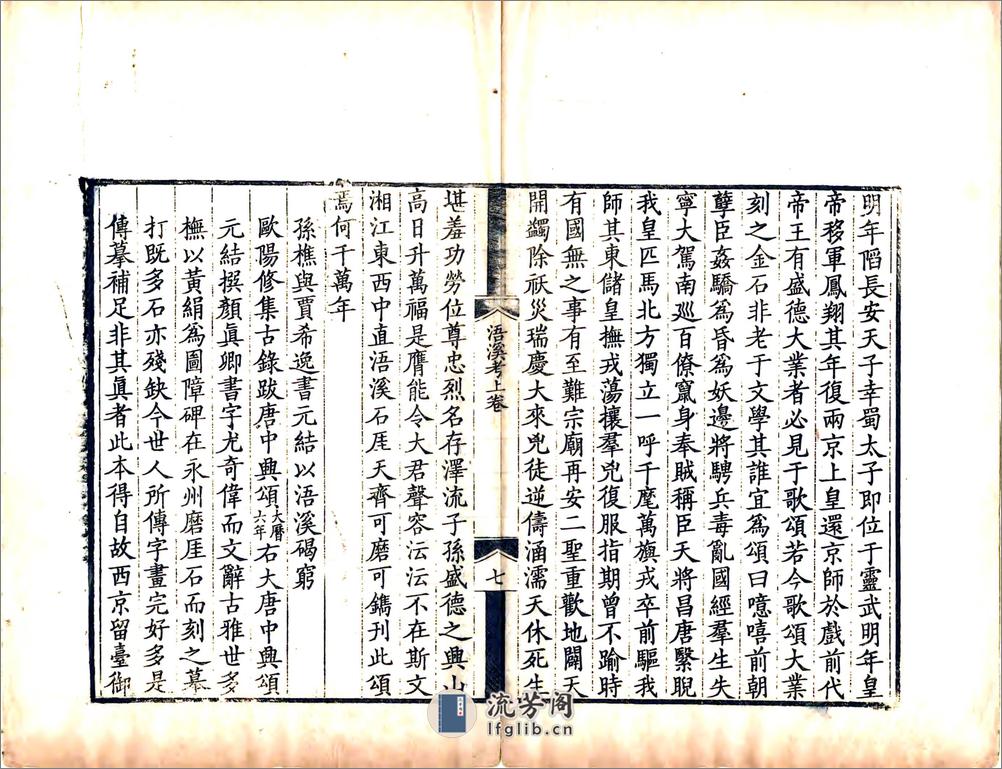 明年陷長安天子幸蜀太子即位于靈武明年皇
帝移軍鳳翔其年復兩京上皇還京師於戲前代
帝王有盛德大業者必見于歌頌若今歌頌大業
刻之金石非老于文學其誰宜爲頌曰噫嘻前朝
孽臣姦驕爲昏爲妖邊將騁兵毒亂國經羣生失
寧大駕南巡百僚竄身奉賊稱臣天將昌唐繄睨
我皇匹馬北方獨立一呼千麾萬旟戎卒前驅我
師其東儲皇撫戎蕩攘羣兇復服指期曾不踰時
有國無之事有至難宗廟再安二聖重歡地闢天
開蠲除祅災瑞慶大來兇徒逆儔涵濡天休死生
浯溪考上卷
七
堪羞功勞位尊忠烈名存澤流子孫盛德之興山
高日升萬福是膺能令大君聲容沄沄不在斯文
湘江東西中直浯溪石厓天齊可磨可鐫刊此頌
焉何千萬年
孫樵與賈希逸書元結以浯溪碣窮
歐陽修集古錄跋唐中興頌大曆六年右大唐中興頌
元結撰顏眞卿書字尤奇偉而文辭古雅世多
橅以黃絹爲圖障碑在永州磨厓石而刻之摹
打既多石亦殘缺今世人所傳字畫完好多是
傳摹補足非其眞者此本得自故西京留臺御
流芳阁
lfglib.cn